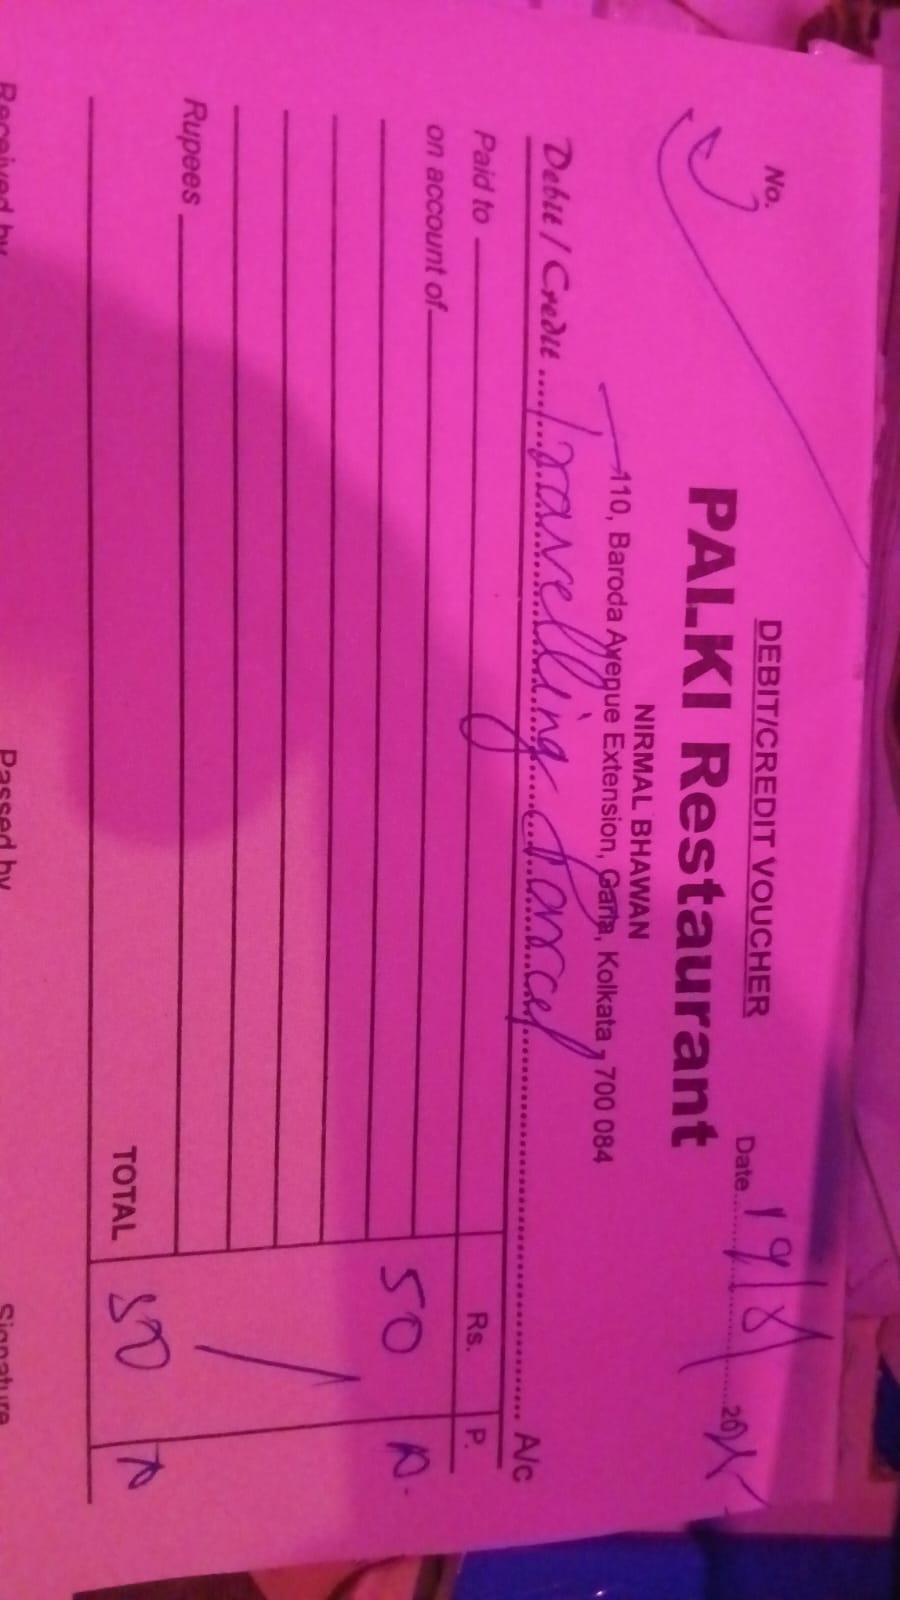 DEBIT/CREDIT VOUCHER
No. Date 19/8/ 20
PALKI Restaurant
NIRMAL BHAWAN
110, Baroda Avenue Extension, Garia, Kolkata - 700 084
Debit / Credit Travelling Parcel A/c
Paid to Rs. P.
on account of
50
Rupees
TOTAL 50
Received by Passed by Signature